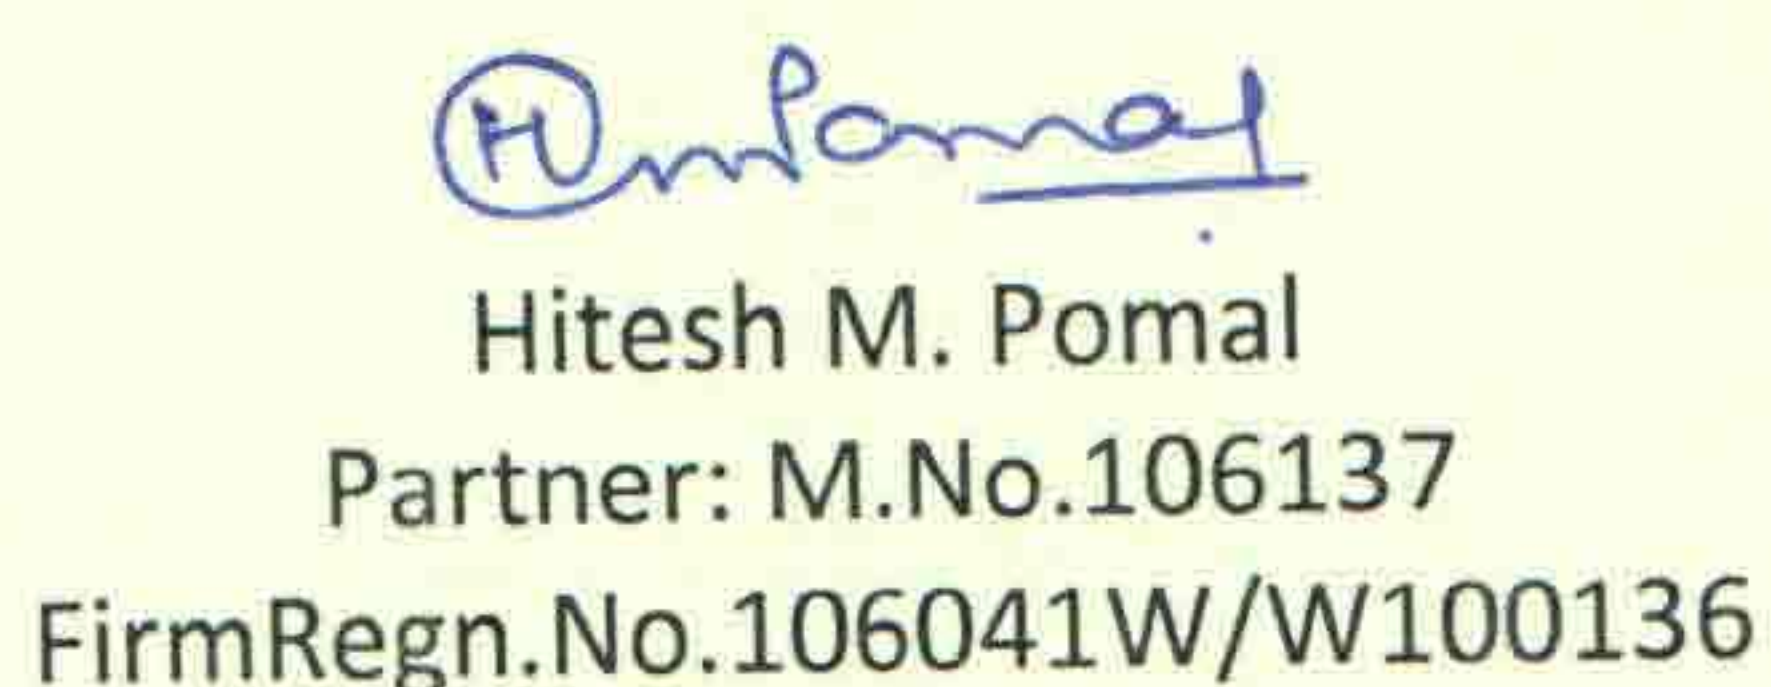 HmPomal
Hitesh M. Pomal
Partner: M.No.106137
FirmRegn.No.106041W/W100136